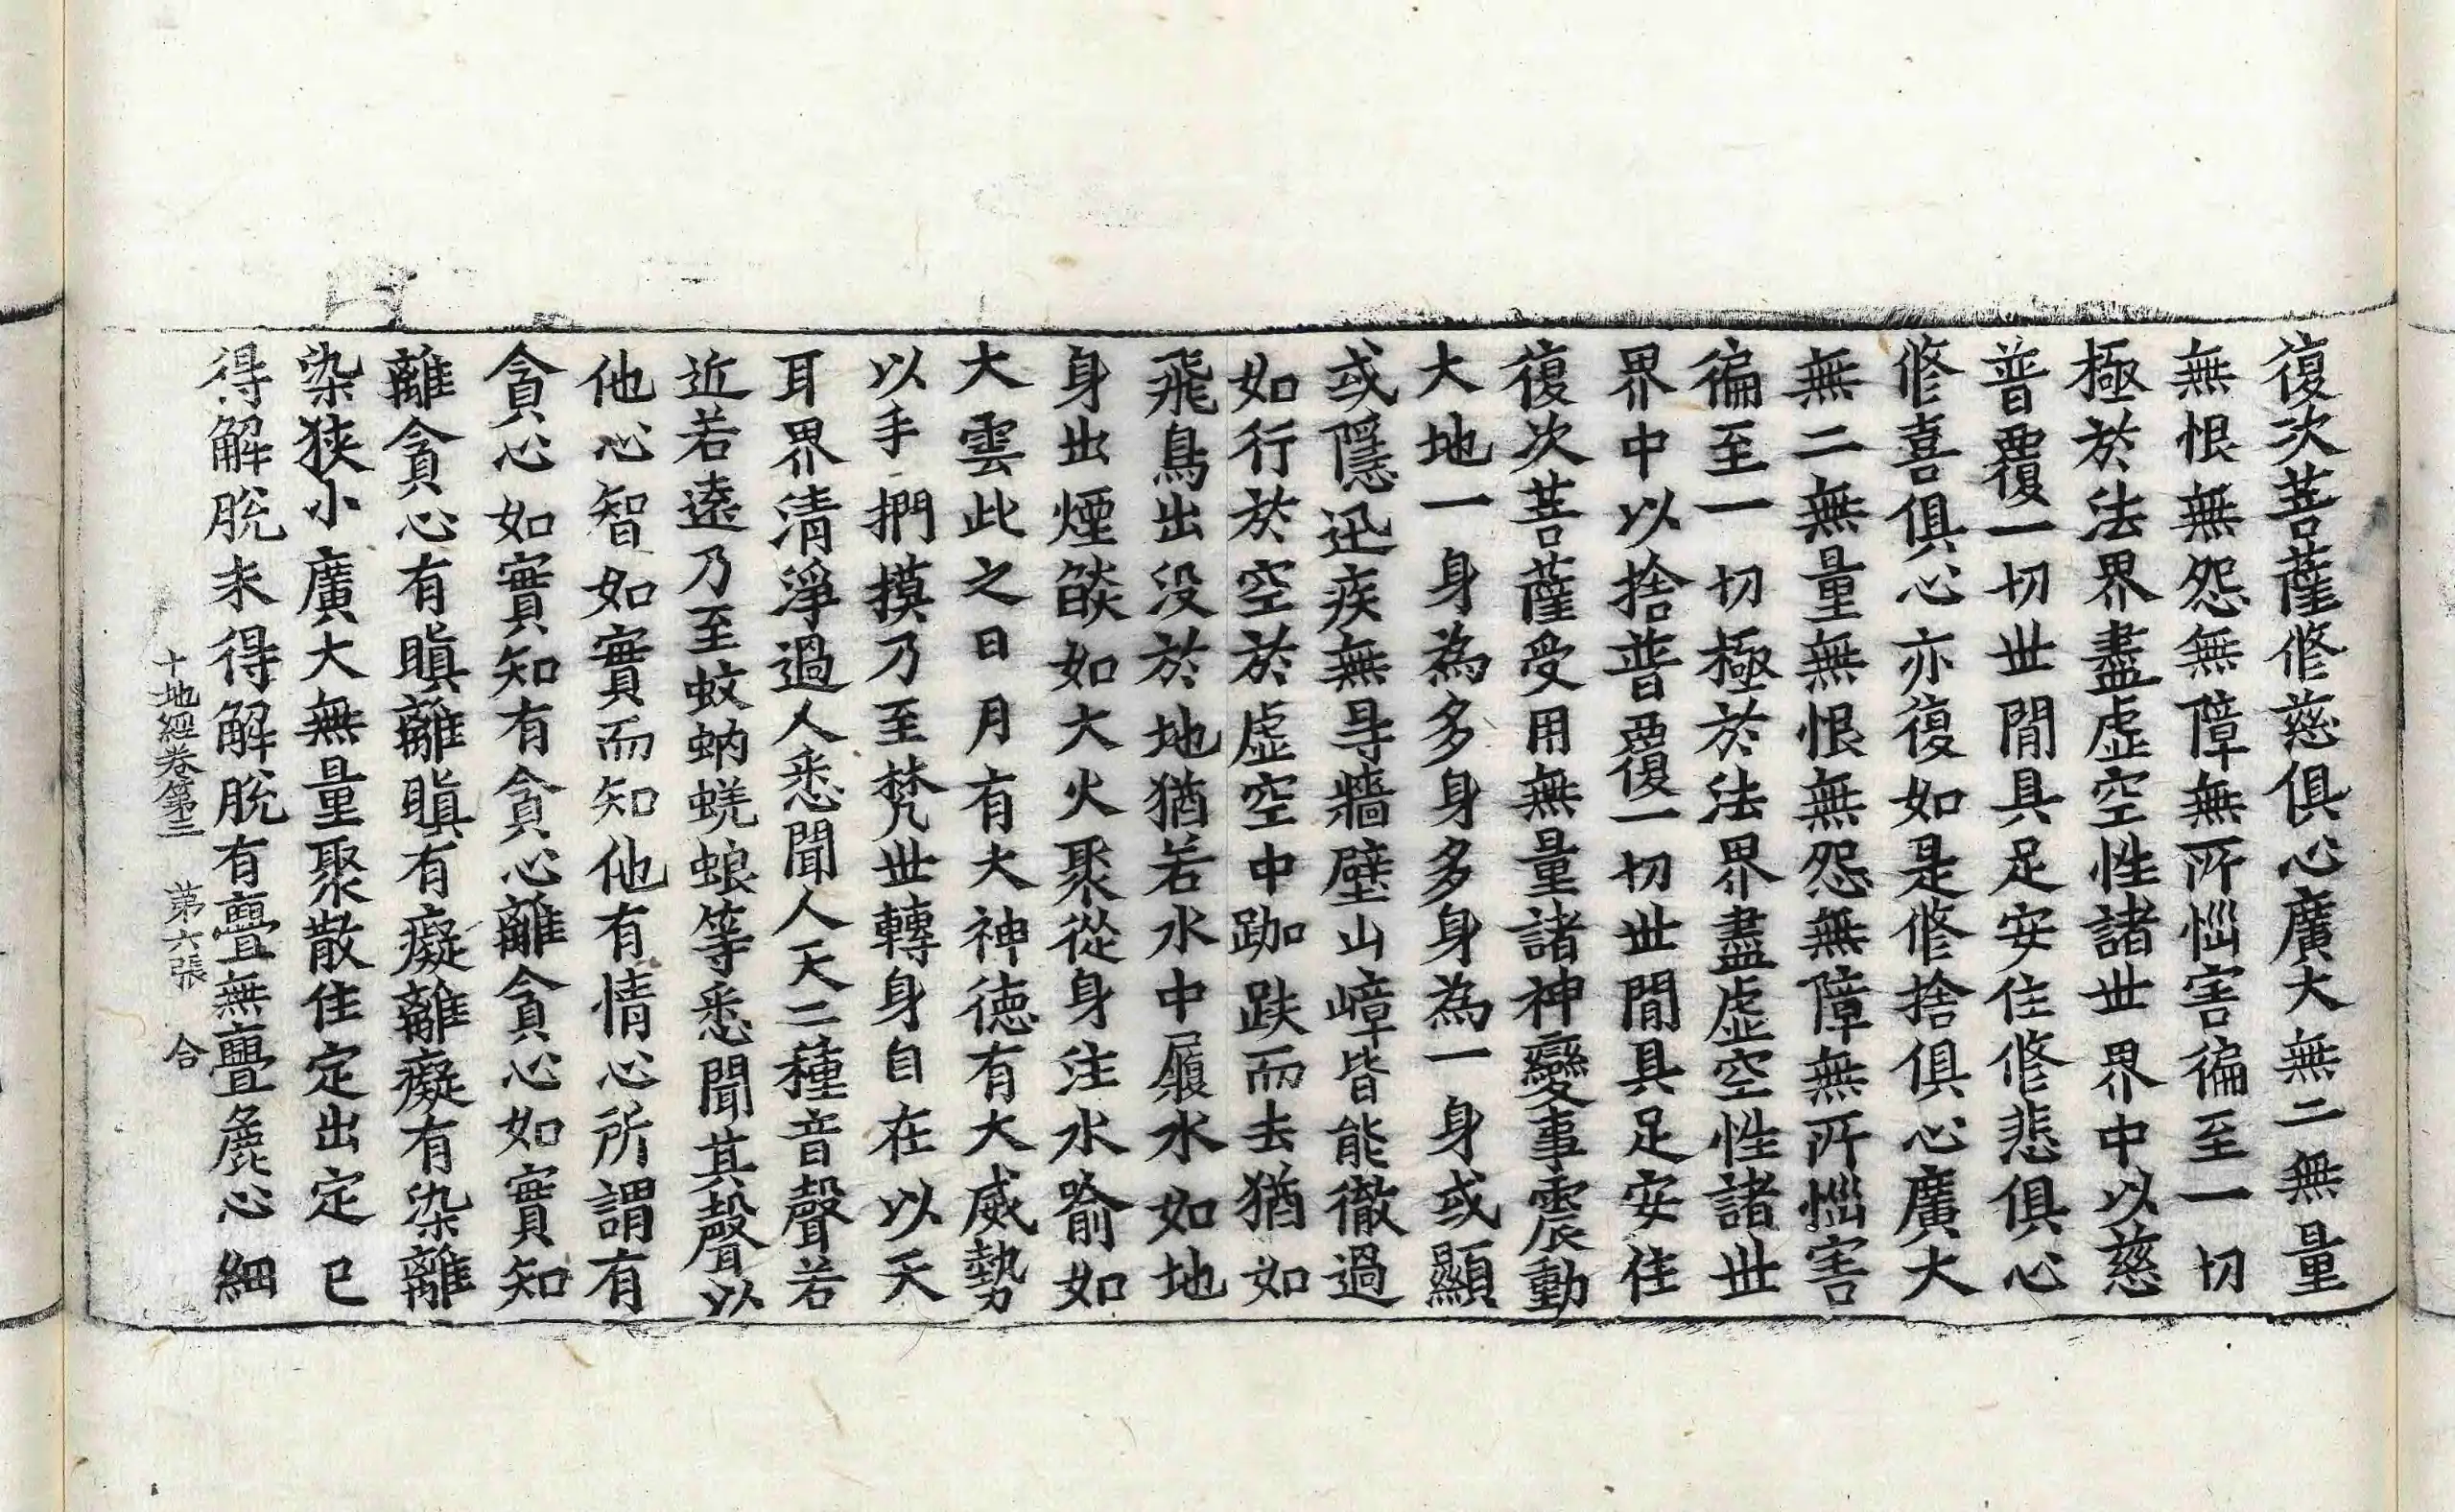 復次菩薩修慈俱心廣大無二無量
無恨無怨無障無所惱害徧至一切
極於法界盡虛空性諸世界中以慈
普覆一切世閒具足安住修悲俱心
修喜俱心亦復如是修捨俱心廣大
無二無量無恨無怨無障無所惱害
徧至一切極於法界盡虛空性諸世
界中以捨普覆一切世閒具足安住
復次菩薩受用無量諸神變事震動
大地一身為多身多身為一身或顯
或隱迅疾無㝵牆壁山嶂皆能徹過
如行於空於虛空中跏趺而去猶如
飛鳥出没於地猶若水中履水如地
身出煙燄如大火聚從身注水喻如
大雲此之日月有大神德有大威勢
以手捫摸乃至梵世轉身自在以天
耳界清淨過人悉聞人天二種音聲若
近若遠乃至蚊蚋蜣蜋等悉聞其聲以
他心智如實而知他有情心所謂有
貪心如實知有貪心離貪心如實知
離貪心有瞋離瞋有癡離癡有染離
染狹小廣大無量聚散住定出定已
得解脫未得解脫有亹無亹麁心細
十地經卷第三 第六張 合